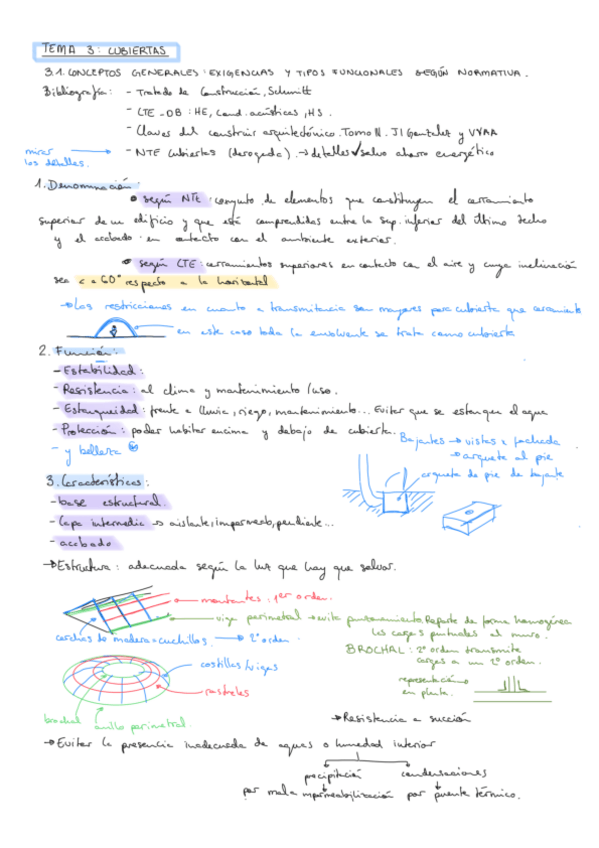 TEMA 3: CUBIERTAS
3.1. CONCEPTOS GENERALES: EXIGENCIAS Y TIPOS FUNCIONALES SEGÚN NORMATIVA.
Bibliografía: - Tratado de Construcción, Schmitt
- CTE-DB: HE, Cond. acústicas, HS.
- Claves del construir arquitectónico. Tomo II. JI González y VVAA
mirar los detalles. → - NTE Cubiertas (derogada). → detalles ✓ salvo ahorro energético
1. Denominación:
• según NTE: conjunto de elementos que constituyen el cerramiento
superior de un edificio y que está comprendidas entre la sup. inferior del último techo
y el acabado en contacto con el ambiente exterior.
• según CTE: cerramientos superiores en contacto con el aire y cuya inclinación
sea < a 60° respecto a la horizontal
→ Las restricciones en cuanto a transmitancia son mayores para cubierta que cerramiento
→ en este caso toda la envolvente se trata como cubierta
2. Función:
- Estabilidad:
- Resistencia: al clima y mantenimiento/uso.
- Estanqueidad: frente a lluvia, riego, mantenimiento... Evitar que se estanque el agua
- Protección: poder habitar encima y debajo de cubierta.
- y belleza
Bajantes → vistas x fachada
→ arqueta al pie
arqueta de pie de bajante
3. Características:
- base estructural.
- Capa intermedia → aislante, impermeab, pendiente...
- acabado
→ Estructura: adecuada según la luz que hay que salvar.
montantes: 1er orden.
viga perimetral → evita punzonamiento. Reparte de forma homogénea
las cargas puntuales al muro.
cerchas de madera = cuchillos. → 2º orden
BROCHAL: 2º orden transmite
cargas a un 2º orden.
costillas/vigas
rastreles
representación en planta.
brochal anillo perimetral.
→ Resistencia a succión
→ Evitar la presencia inadecuada de aguas o humedad interior
precipitación condensaciones
por mala impermeabilización por puente térmico.